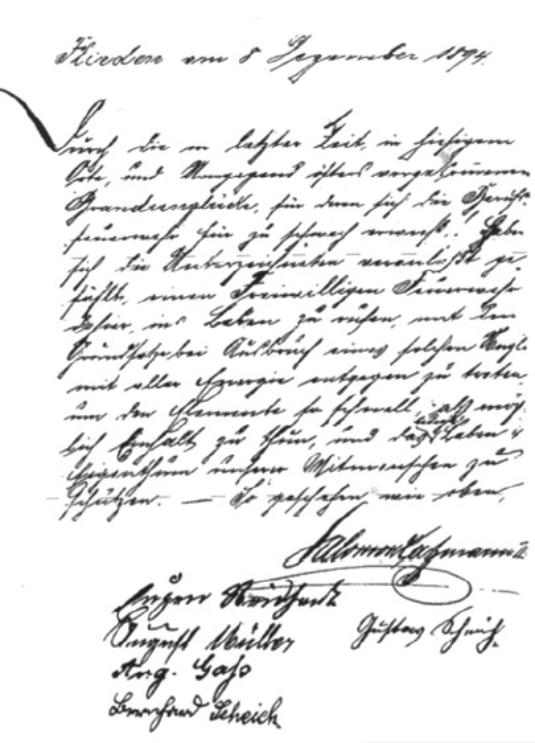 Flieden am 8 Dezember 1894.
Durch die in letzter Zeit, in hiesigem
Orte, und Umgegend öfters vorgekommenen
Brandunglücke, für deren sich die Berufs-
feuerwehr hier zu schwach erweist, haben
sich die Unterzeichneten veranlaßt ge-
fühlt, einen Freiwilligen Feuerwehr
dahier, ins Leben zu rufen, mit dem
Grundsatze bei Ausbruch eines solchen
mit aller Energie entgegen zu treten,
um dem Elemente so schnell, als mög-
lich Einhalt zu thun, und das Leben &
Eigenthum unserer Mitmenschen zu
schützen. — So geschehen wie oben,
Salomon II
Eugen
August Müller
Gustav
Aug. Gass
Bernhard Scheich